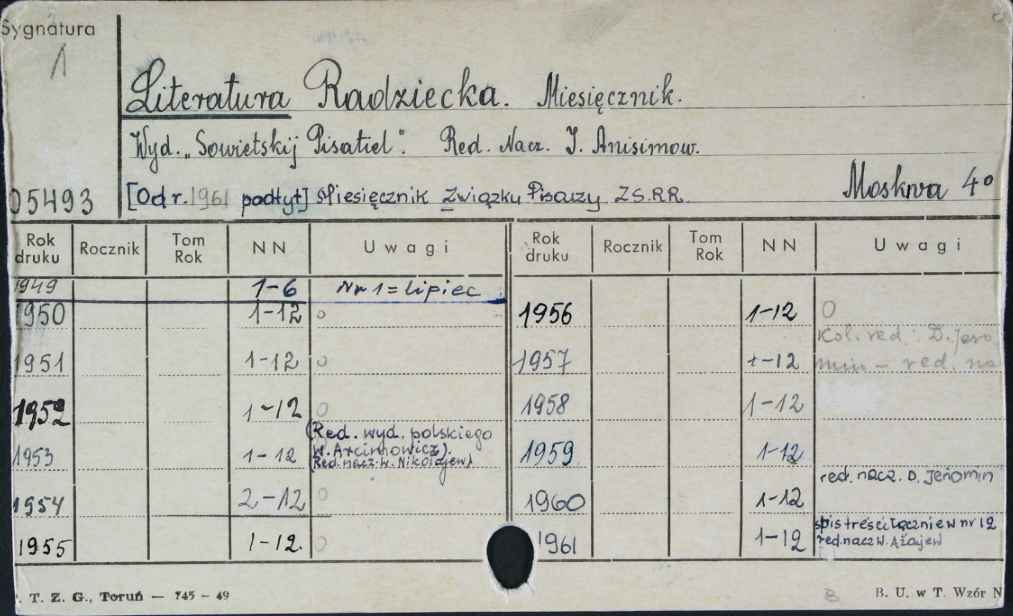 Sygnatura
Literatura Radziecka. Miesięcznik.
Wyd. „Sowietskij Pisatiel". Red. Nacz. I. Anisimow.
05493 [Od r. 1961 podtyt] Miesięcznik Związku Pisarzy ZSRR. Moskwa 4°
Rok druku Rocznik Tom Rok NN Uwagi Rok druku Rocznik Tom Rok NN Uwagi
1949 1-6 Nr 1 = Lipiec
1950 1-12 o 1956 1-12 o
Kol. red. D. Jero
1951 1-12 o 1957 1-12 min - red. na
1952 1-12 o 1958 1-12
(Red. wyd. polskiego
1953 1-12 W. Arcimowicz). 1959 1-12
(Red. nacz. W. Nikołajew)
red. nacz. D. Jeromin
1954 2-12 o 1960 1-12
spis treści łącznie w nr 12
1955 1-12. o 1961 1-12 red. nacz W. Ażajew
. T. Z. G., Toruń — 745 - 49 B. U. w T. Wzór N